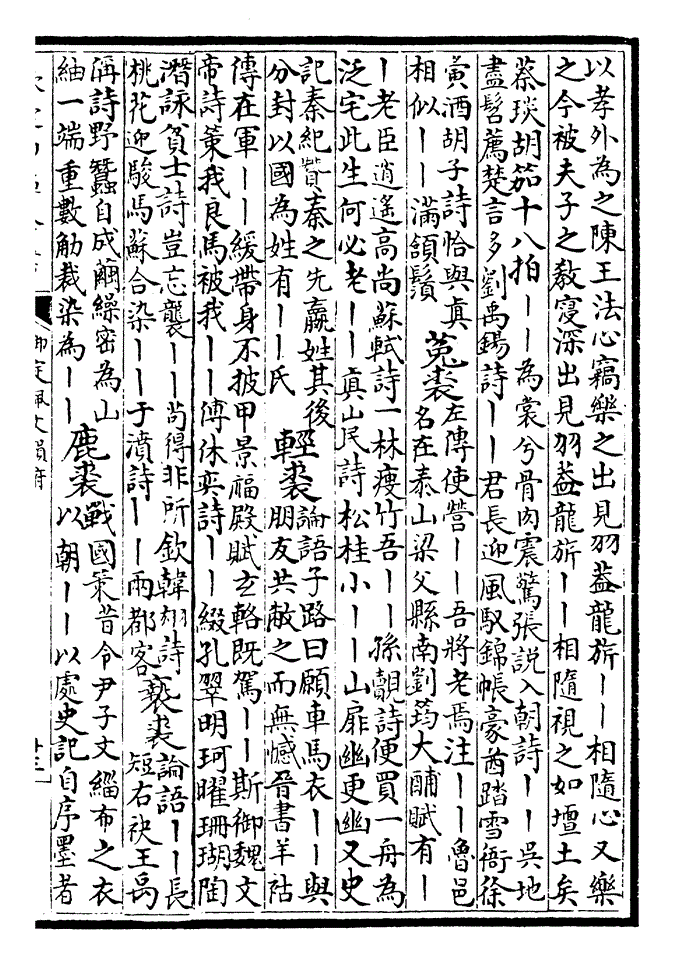 以孝外為之陳王法心竊樂之出見羽葢龍旂丨丨相隨心又樂
之今被夫子之教寖深出見羽葢龍旂丨丨相隨視之如壇土矣
蔡琰胡笳十八拍丨丨為裳兮骨肉震驚張説入朝詩丨丨吳地
盡髫薦楚言多劉禹錫詩丨丨君長迎風馭錦帳豪酋踏雪衙徐
黄酒胡子詩恰與真
相似丨丨滿頷鬚
菟裘
左傳使營丨丨吾將老焉注丨丨魯邑
名在泰山梁父縣南劉筠大酺賦有丨
丨老臣逍遙高尚蘇軾詩一林瘦竹吾丨丨孫覿詩便買一舟為
泛宅此生何必老丨丨真山民詩松桂小丨丨山扉幽更幽又史
記秦紀贊秦之先嬴姓其後
分封以國為姓有丨丨氏
輕裘
論語子路曰願車馬衣丨丨與
朋友共敝之而無憾晉書羊祜
傳在軍丨丨緩帶身不披甲景福殿賦玄輅既駕丨丨斯御魏文
帝詩策我良馬被我丨丨傅休奕詩丨丨綴孔翠明珂曜珊瑚陶
潛詠貧士詩豈忘襲丨丨苟得非所欽韓翃詩
桃花迎駿馬蘇合染丨丨于濆詩丨丨兩都客
褻裘
論語丨丨長
短右袂王禹
偁詩野蠶自成繭繰密為山
紬一端重數觔裁染為丨丨
鹿裘
戰國策昔令尹子文緇布之衣
以朝丨丨以處史記自序墨者
御定佩文韻府